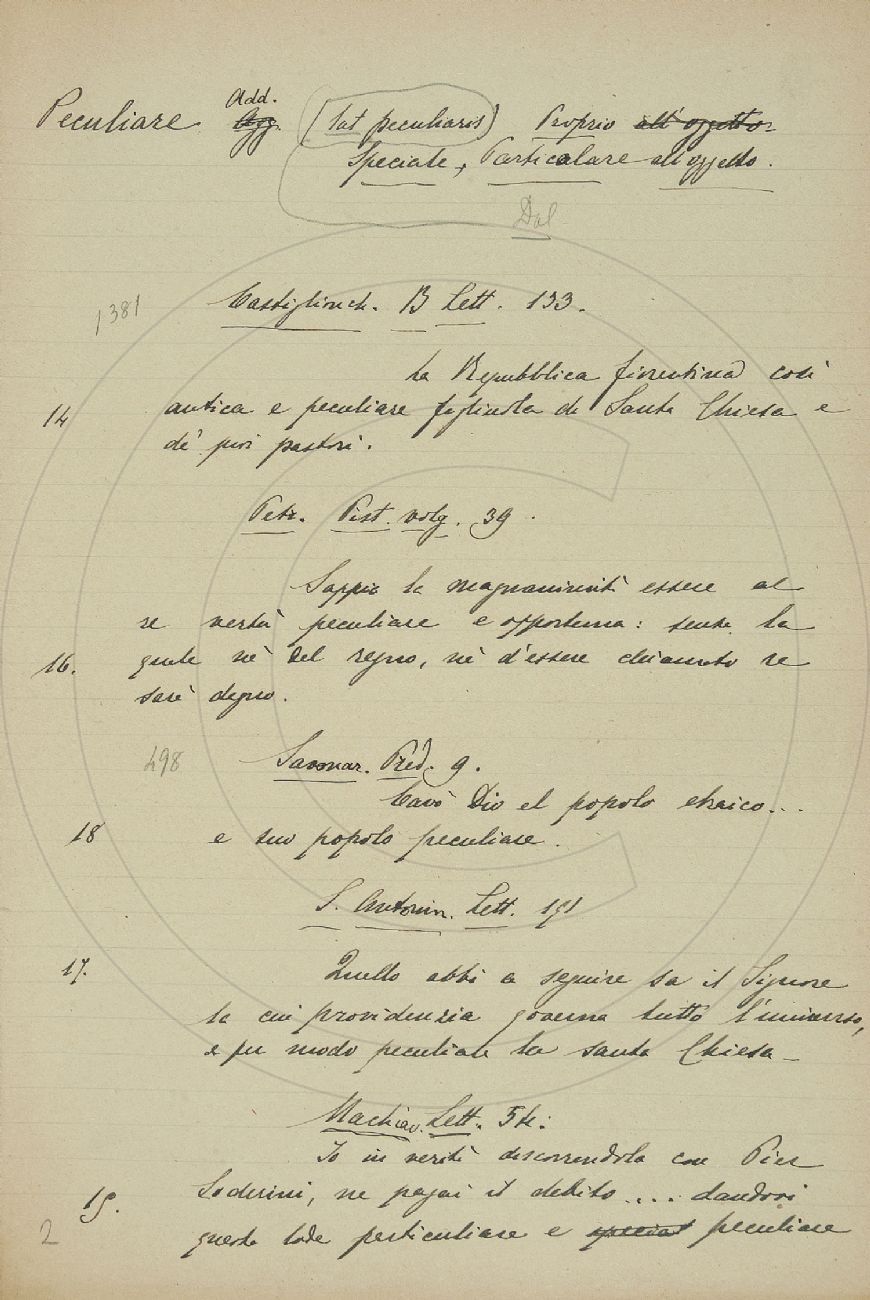 Peculiare Add. Agg. (lat peculiaris) Proprio all'oggetto
Speciale, Particolare all'oggetto.
Dal
1381
Castiglionch. B Lett. 133.
La Repubblica fiorentina così
14 antica e peculiare figliuola di Santa Chiesa e
de' suoi pastori.
Petr. Pist. volg. 39.
Sappia la magnanimità essere al
re vertù peculiare e opportuna: senza la
16. quale nè del regno, nè d'essere chiamato re
sarè degno.
498 Savonar. Pred. 9.
Cavò Dio el popolo ebraico...
18 e suo popolo peculiare.
S. Antonin. Lett. 191
17. Quello abbi a seguire sa il Signore
la cui providenzia governa tutto l'universo,
e per modo peculiare la santa Chiesa
Machiav. Lett. 54:
Io in verità discorrendola con Pier
19. Soderini, ne pagai il debito.... dandovi
2 questa lode particulare e special peculiare